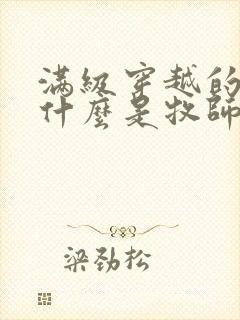 滿級穿越的
什麼是牧師
梁劲松